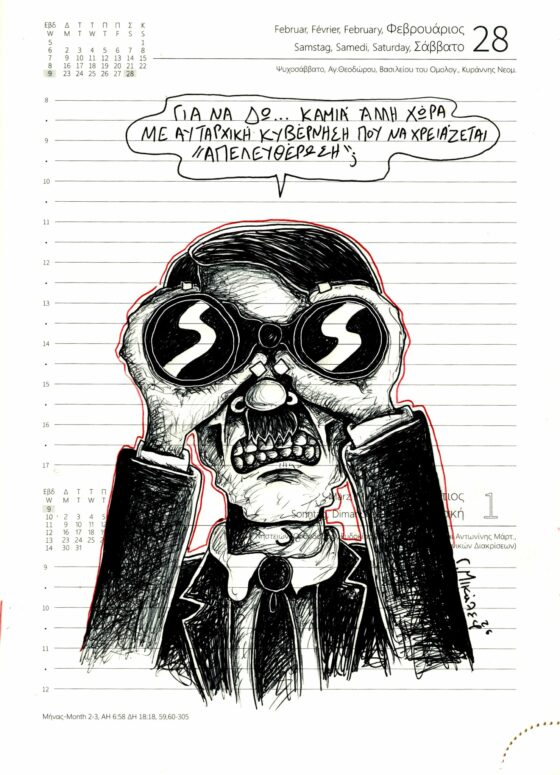 Εβδ Δ Τ Τ Π Π Σ Κ
W M T W T F S S
5 1
6 2 3 4 5 6 7 8
7 9 10 11 12 13 14 15
8 16 17 18 19 20 21 22
9 23 24 25 26 27 28
Februar, Février, February, Φεβρουάριος
Samstag, Samedi, Saturday, Σάββατο
28
Ψυχοσάββατο, Αγ.Θεοδώρου, Βασιλείου του Ομολογ., Κυράννης Νεομ.
ΓΙΑ ΝΑ ΔΩ... ΚΑΜΙΑ ΑΛΛΗ ΧΩΡΑ
ΜΕ ΑΥΤΑΡΧΙΚΗ ΚΥΒΕΡΝΗΣΗ ΠΟΥ ΝΑ ΧΡΕΙΑΖΕΤΑΙ
"ΑΠΕΛΕΥΘΕΡΩΣΗ";
8
9
10
11
12
13
14
15
16
17
S S
Εβδ Δ Τ Τ Π Π
W M T W T
9
10 2 3 4
11 9 10 11
12 16 17 18
13 23 24 25
14 30 31
1
Αντωνίνης Μάρτ.,
Διακρίσεων)
Γ. ΜΙΚΑΛΕΦ 26
9
10
11
12
Μήνας-Month 2-3, ΑΗ 6:58 ΔΗ 18:18, 59.60-305